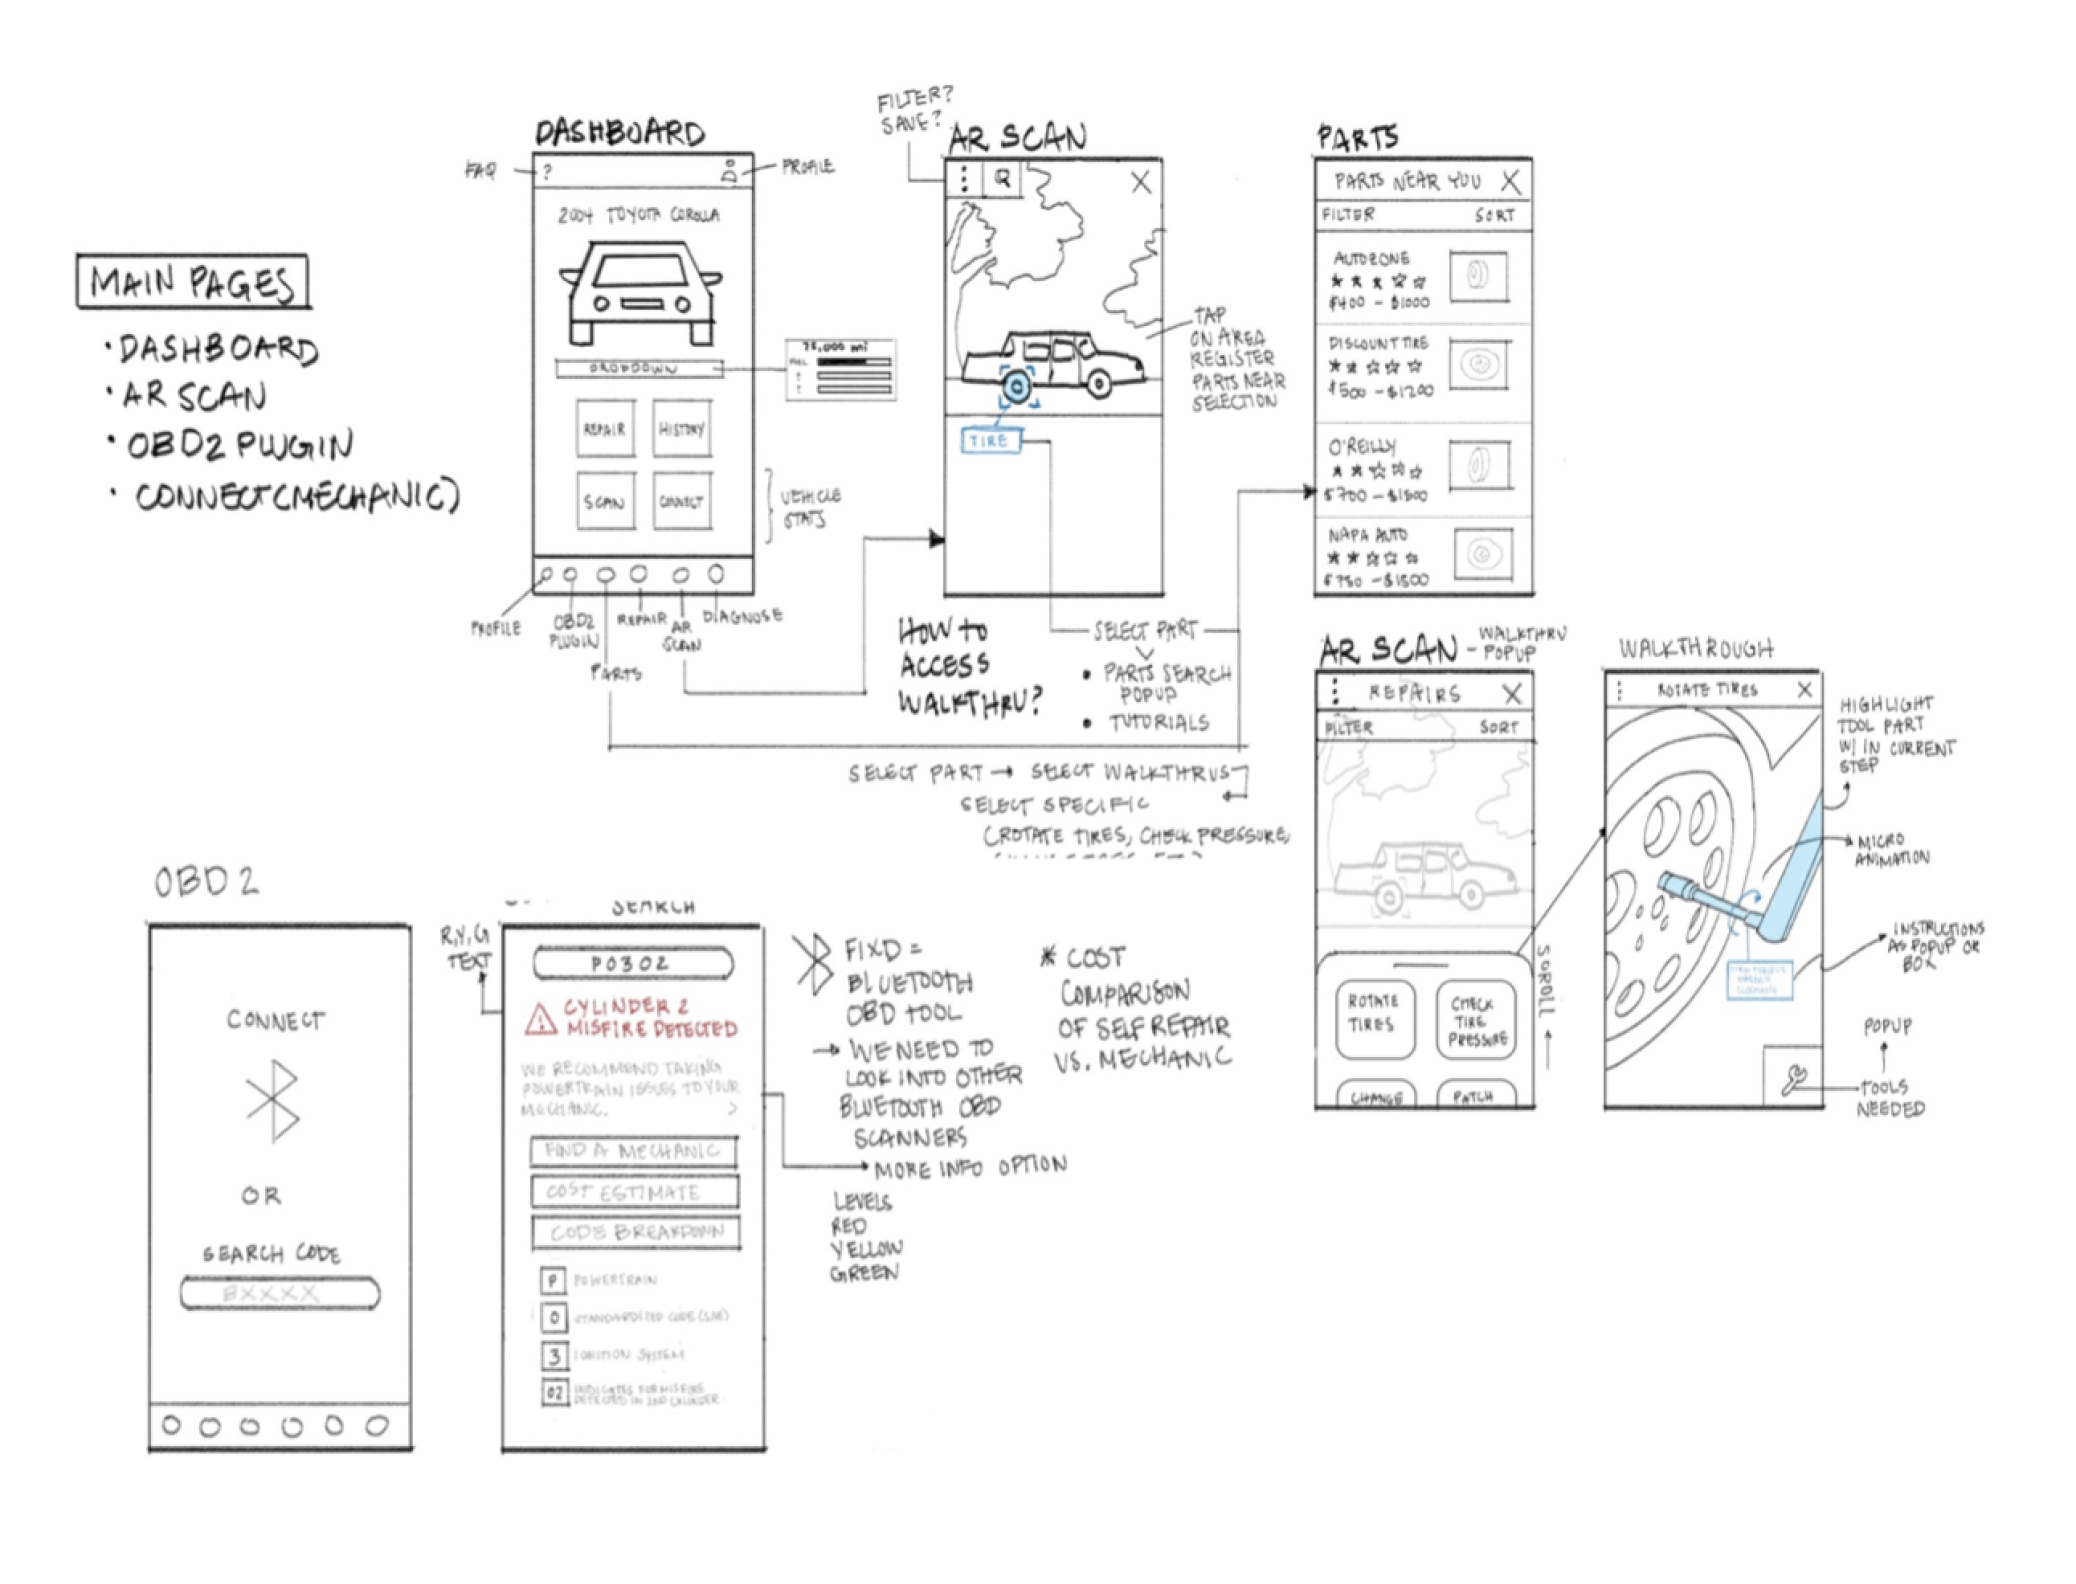 MAIN PAGES
• DASHBOARD
• AR SCAN
• OBD2 PLUGIN
• CONNECT(MECHANIC)
DASHBOARD
FAQ
?
PROFILE
2004 TOYOTA COROLLA
DROPDOWN
FUEL
REPAIR
HISTORY
SCAN
CONNECT
VEHICLE
STATS
PROFILE
OBD2
PLUGIN
PARTS
REPAIR
AR
SCAN
DIAGNOSE
FILTER?
SAVE?
AR SCAN
X
TAP
ON AREA
REGISTER
PARTS NEAR
SELECTION
TIRE
HOW TO
ACCESS
WALKTHRU?
SELECT PART
• PARTS SEARCH
POPUP
• TUTORIALS
SELECT PART → SELECT WALKTHRUS
SELECT SPECIFIC
(ROTATE TIRES, CHECK PRESSURE,
PARTS
PARTS NEAR YOU X
FILTER SORT
AUTOZONE
$400 - $1000
DISCOUNT TIRE
$500 - $1200
O'REILLY
$700 - $1500
NAPA AUTO
$750 - $1500
AR SCAN - WALKTHRU
POPUP
REPAIRS X
FILTER SORT
SCROLL
ROTATE
TIRES
CHECK
TIRE
PRESSURE
CHANGE
PATCH
WALKTHROUGH
ROTATE TIRES X
HIGHLIGHT
TOOL PART
W/ IN CURRENT
STEP
MICRO
ANIMATION
INSTRUCTIONS
AS POPUP OR
BOX
POPUP
TOOLS
NEEDED
OBD2
CONNECT
OR
SEARCH CODE
BXXXX
SEARCH
R,Y,G
TEXT
P0302
! CYLINDER 2
MISFIRE DETECTED
WE RECOMMEND TAKING
POWERTRAIN ISSUES TO YOUR
MECHANIC. >
FIND A MECHANIC
COST ESTIMATE
CODE BREAKDOWN
P POWERTRAIN
0 STANDARDIZED CODE (SAE)
3 IGNITION SYSTEM
02 INDICATES FOR MISFIRE
DETECTED IN 2ND CYLINDER
FIXD =
BLUETOOTH
OBD TOOL
→ WE NEED TO
LOOK INTO OTHER
BLUETOOTH OBD
SCANNERS
MORE INFO OPTION
LEVELS
RED
YELLOW
GREEN
* COST
COMPARISON
OF SELF REPAIR
VS. MECHANIC